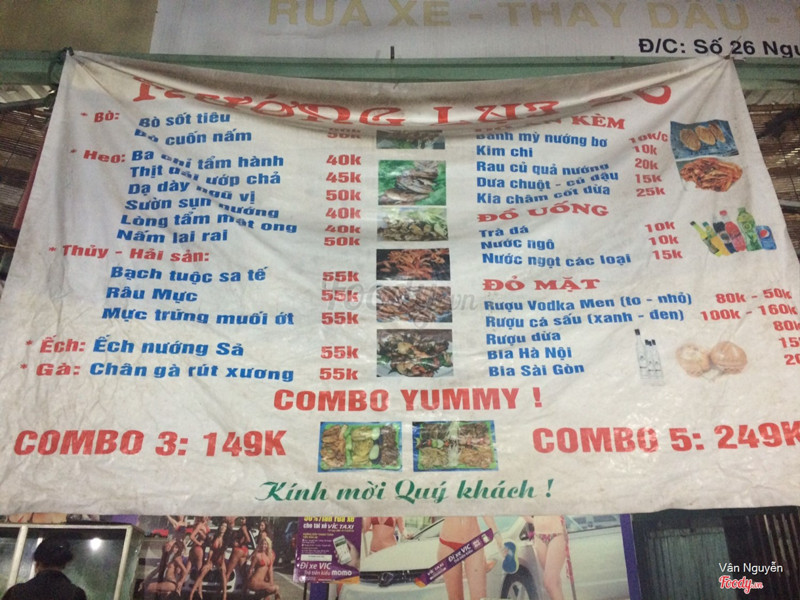 RỬA XE - THAY DẦU -
Đ/C: Số 26
* Bò: Bò sốt tiêu
Bò cuốn nấm 50k
* Heo: Ba chỉ tẩm hành 40k
Thịt ướp chả 45k
Dạ dày ngũ vị 50k
Sườn sụn nướng 40k
Lòng tẩm mật ong 40k
Nấm lai rai 50k
* Thủy - Hải sản:
Bạch tuộc sa tế 55k
Râu Mực 55k
Mực trứng muối ớt 55k
* Ếch: Ếch nướng Sả 55k
* Gà: Chân gà rút xương 55k
KÈM
Bánh mỳ nướng bơ 10k/c
Kim chi 10k
Rau củ quả nướng 20k
Dưa chuột - củ đậu 15k
Kia châm cốt dừa 25k
ĐỒ UỐNG
Trà đá 10k
Nước ngô 10k
Nước ngọt các loại 15k
ĐỎ MẶT
Rượu Vodka Men (to - nhỏ) 80k - 50k
Rượu cá sấu (xanh - đen) 100k - 160k
Rượu dừa 80
Bia Hà Nội 15
Bia Sài Gòn 20
COMBO YUMMY !
COMBO 3: 149K
COMBO 5: 249K
Kính mời Quý khách !
Đi xe VIC
MOMO
Đi xe VIC
Foody.vn
Vân Nguyễn
Foody.vn